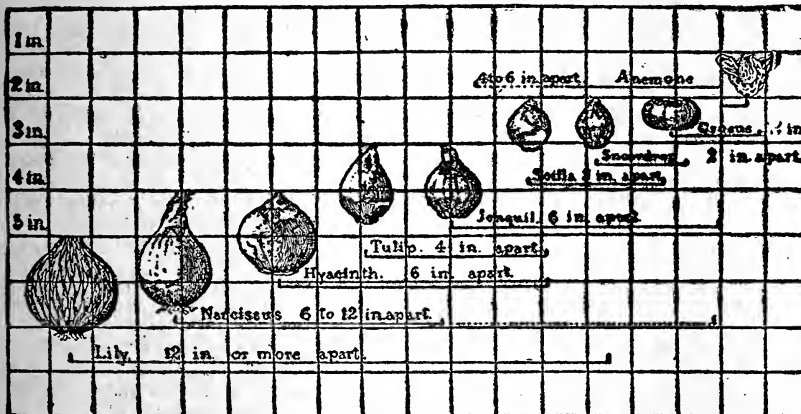 1 in.
2 in.
4 to 6 in. apart Anemone
3 in.
Crocus. in
Snowdrop 2 in. apart.
4 in.
Scilla 2 in. apart
5 in.
Jonquil. 6 in. apart.
Tulip. 4 in. apart.
Hyacinth. 6 in. apart.
Narcissus 6 to 12 in. apart.
Lily, 12 in. or more apart.